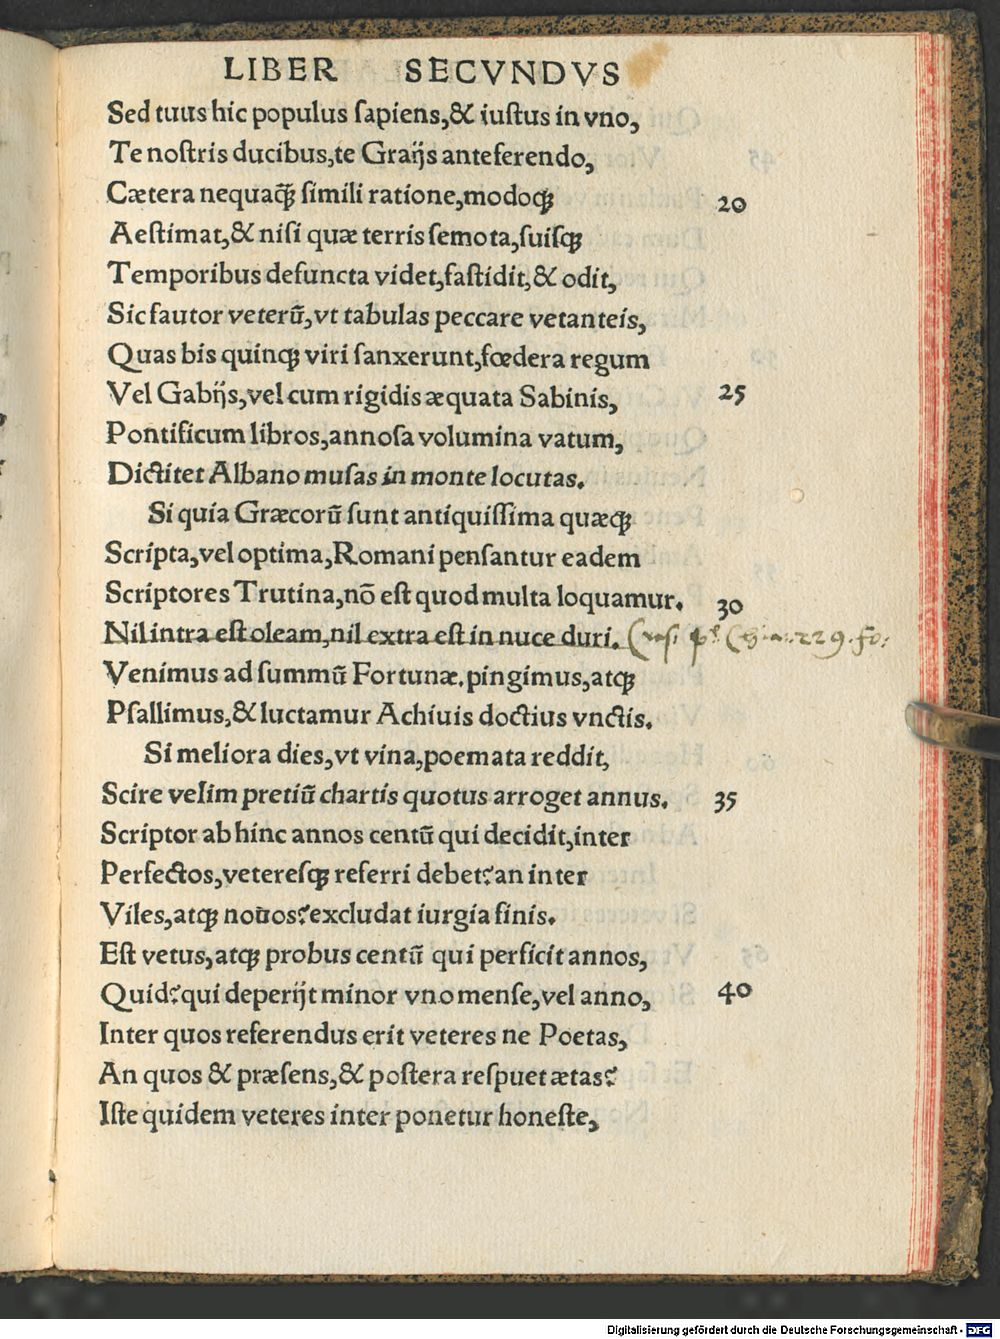 LIBER SECVNDVS
Sed tuus hic populus ſapiens,& iuſtus in vno,
Te noſtris ducibus,te Graijs anteferendo,
Cætera nequaꝗ̃ ſimili ratione,modoꝗ;
20
Aeſtimat,& niſi quæ terris ſemota,ſuiſꝗ;
Temporibus defuncta videt,faſtidit,& odit,
Sic fautor veterũ,vt tabulas peccare vetanteis,
Quas bis quinꝗ; viri ſanxerunt,fœdera regum
Vel Gabijs,vel cum rigidis æquata Sabinis,
25
Pontificum libros,annoſa volumina vatum,
Dictitet Albano muſas in monte locutas.
Si quia Græcorũ ſunt antiquiſſima quæꝗ;
Scripta,vel optima,Romani penſantur eadem
Scriptores Trutina,nõ eſt quod multa loquamur.
30
Nil intra eſt oleam,nil extra eſt in nuce duri.
Venimus ad ſummũ Fortunæ.pingimus,atꝗ;
Pſallimus,& luctamur Achiuis doctius vnctis.
Si meliora dies,vt vina,poemata reddit,
Scire velim pretiũ chartis quotus arroget annus.
35
Scriptor ab hinc annos centũ qui decidit,inter
Perfectos,vetereſꝗ; referri debet?an inter
Viles,atꝗ; nouos?excludat iurgia finis.
Eſt vetus,atꝗ; probus centũ qui perficit annos,
Quid?qui deperijt minor vno menſe,vel anno,
40
Inter quos referendus erit veteres ne Poetas,
An quos & præſens,& poſtera reſpuet ætas?
Iſte quidem veteres inter ponetur honeſte,
Digitalisierung gefördert durch die Deutsche Forschungsgemeinschaft - DFG